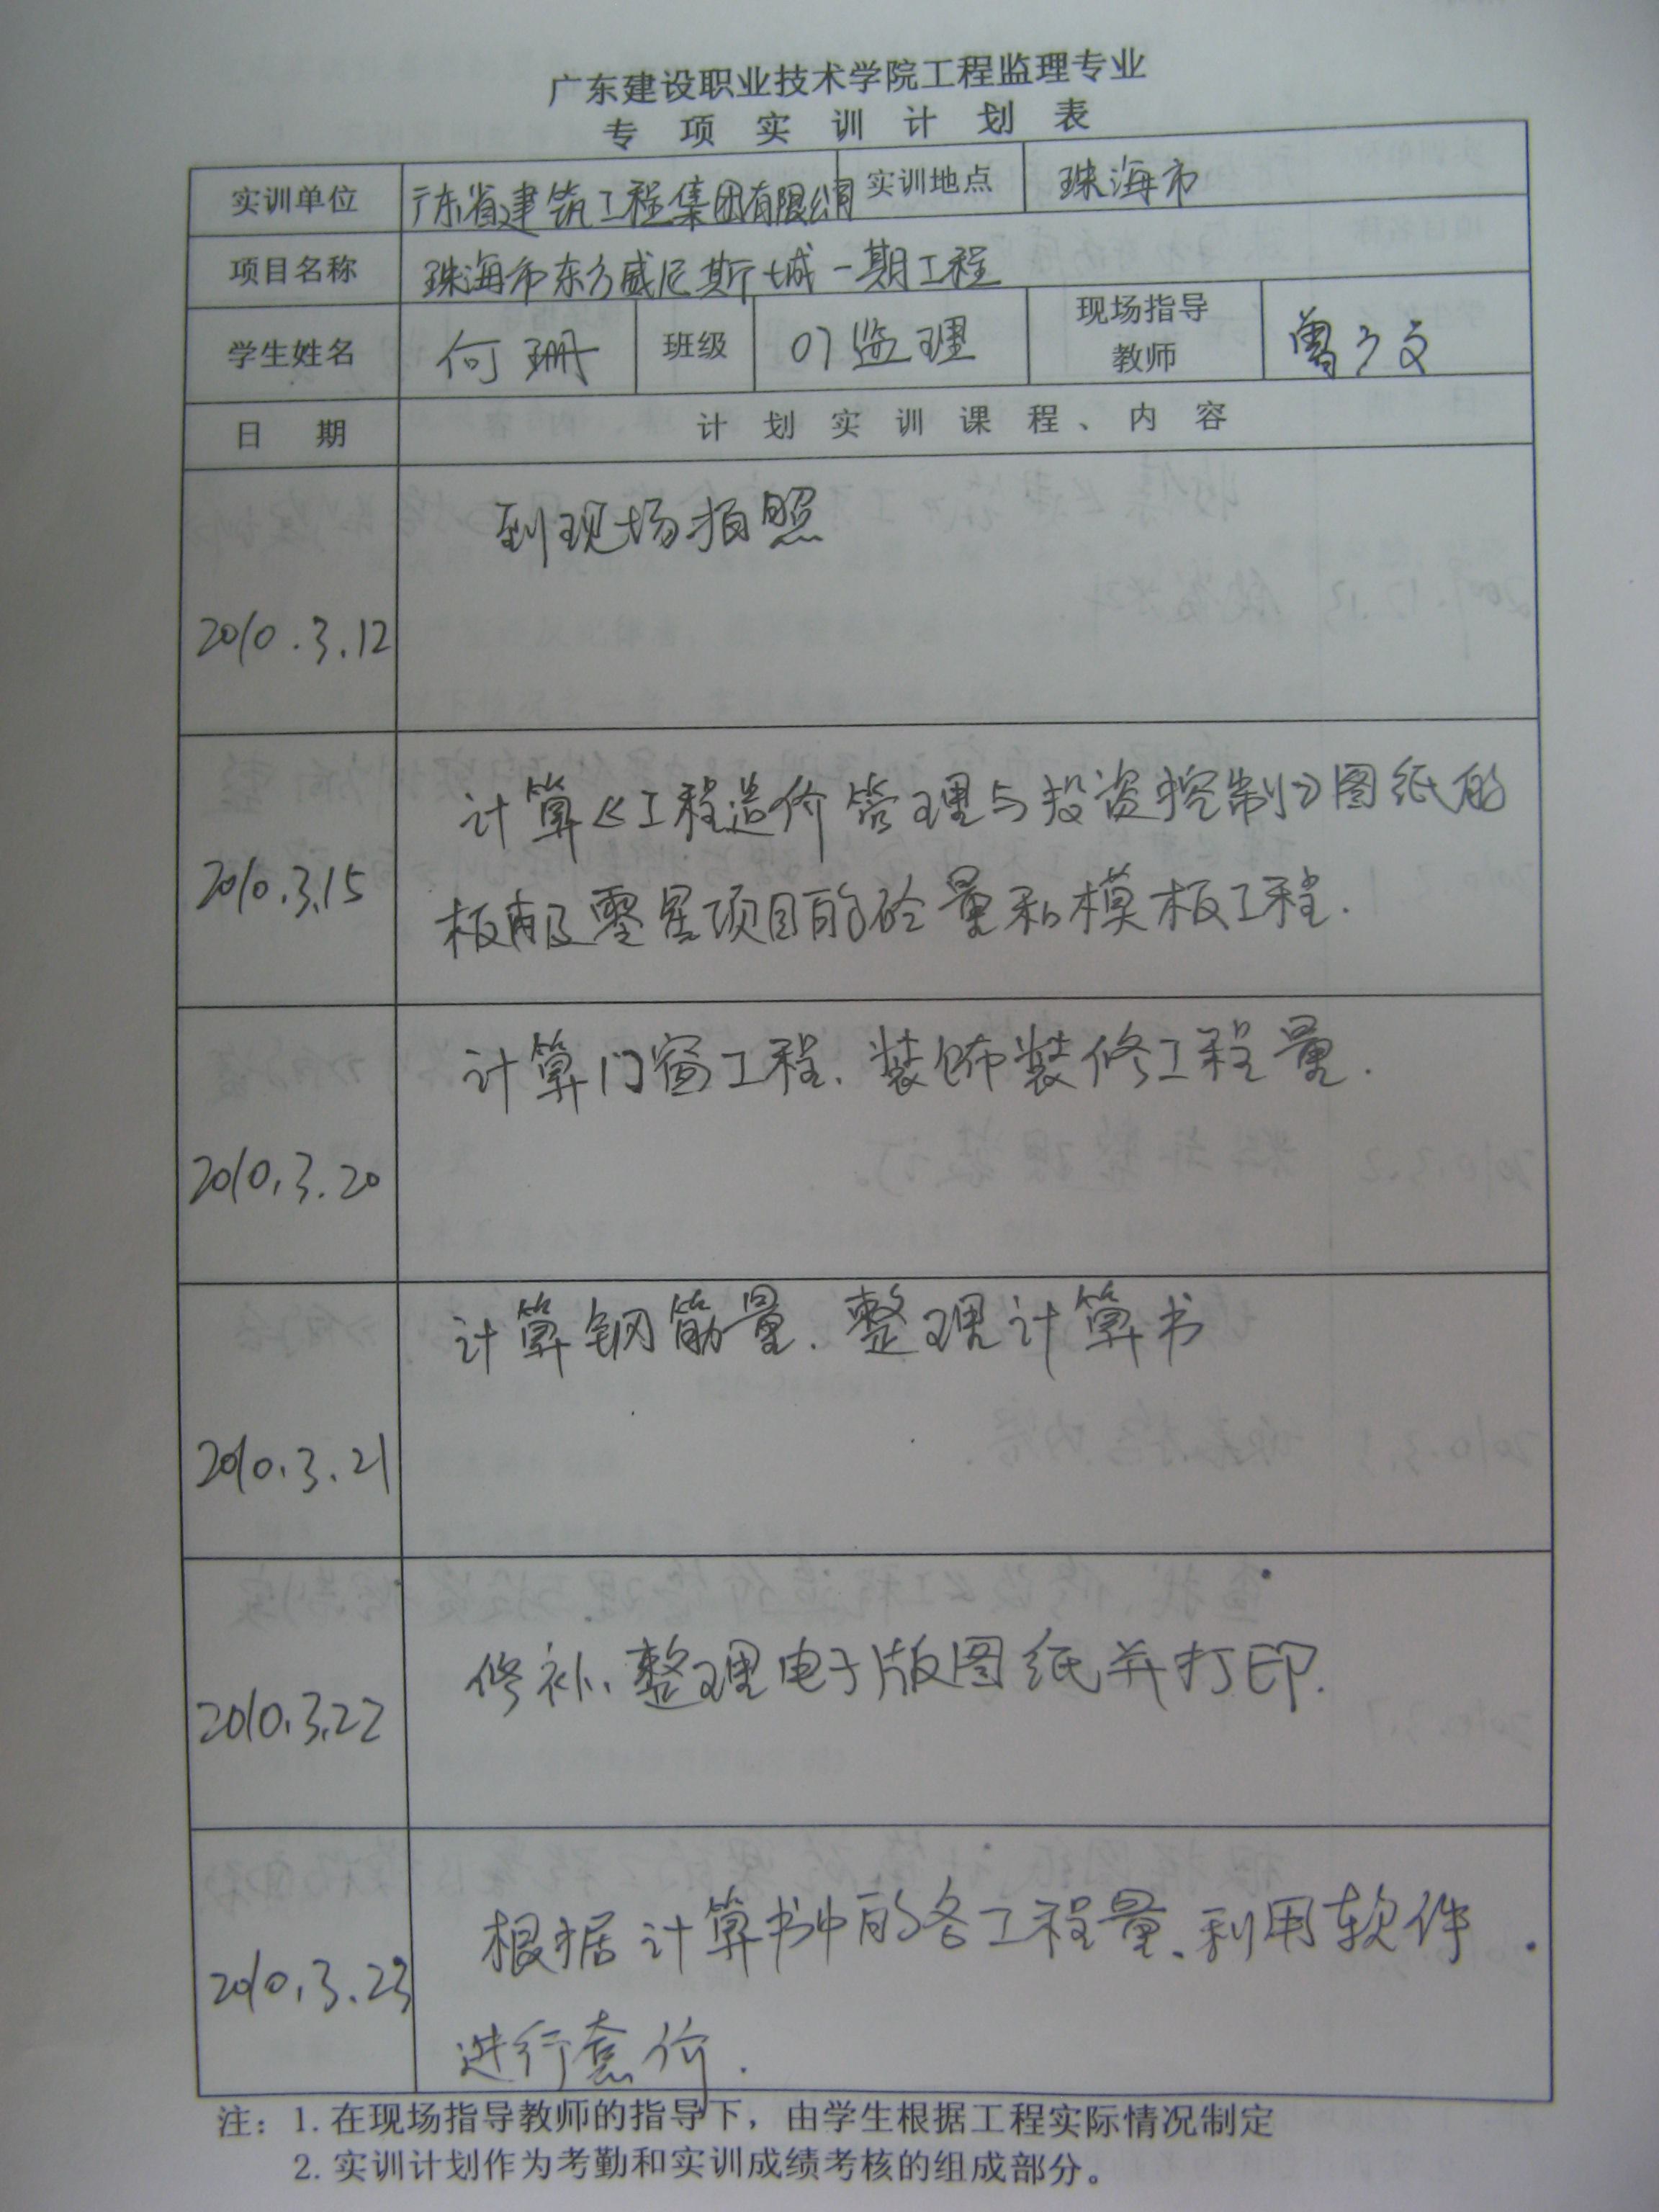 广东建设职业技术学院工程监理专业
专项实训计划表
实训单位 广东省建筑工程集团有限公司 实训地点 珠海市
项目名称 珠海市东方威尼斯城一期工程
学生姓名 何珊 班级 07监理 现场指导
教师 曾少文
日期 计划实训课程、内容
到现场拍照
2010.3.12
计算《工程造价管理与投资控制》图纸的
2010.3.15
板、及零星项目的砼量和模板工程.
计算门窗工程、装饰装修工程量.
2010.3.20
计算钢筋量、整理计算书
2010.3.21
修补、整理电子版图纸并打印.
2010.3.22
根据计算书中的各工程量、利用软件
2010.3.23
进行套价.
注：1. 在现场指导教师的指导下，由学生根据工程实际情况制定
2. 实训计划作为考勤和实训成绩考核的组成部分。